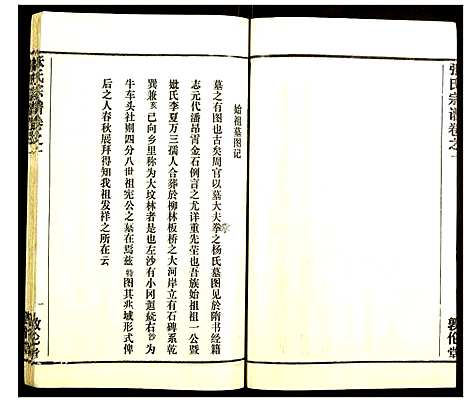 張氏宗譜卷之一
敦倫堂
始祖墓圖記
墓之有圖也古矣周官以墓大夫掌之楊氏墓圖見於隋書經籍
志元代潘昂霄金石例言之尤詳重先塋也吾族始祖祖一公暨
妣氏李夏万三孺人合葬於柳林板橋之大河岸立有石碑系乾
巽兼亥巳向乡里称為大坟林者是也左沙有小冈迴繞右沙為
牛车头社则四分八世祖宪公之墓在焉兹特图其兆域形式俾
后之人春秋展拜得知我祖发祥之所在云
張氏宗譜卷之一
一
敦倫堂